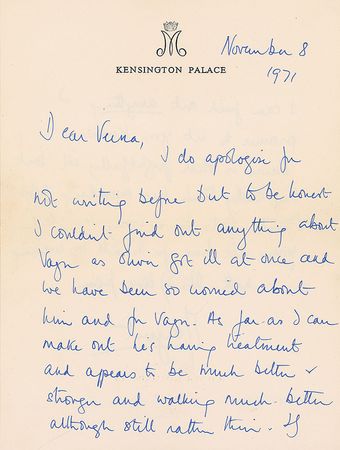 M
KENSINGTON PALACE
November 8
1971
Dear Verna,
I do apologise for
not writing before but to be honest
I couldn't find out anything about
Vagn as Oliver got ill at once and
we have been so worried about
him and for Vagn. As far as I can
make out he's having treatment
and appears to be much better &
stronger and walking much better
although still rather thin. If